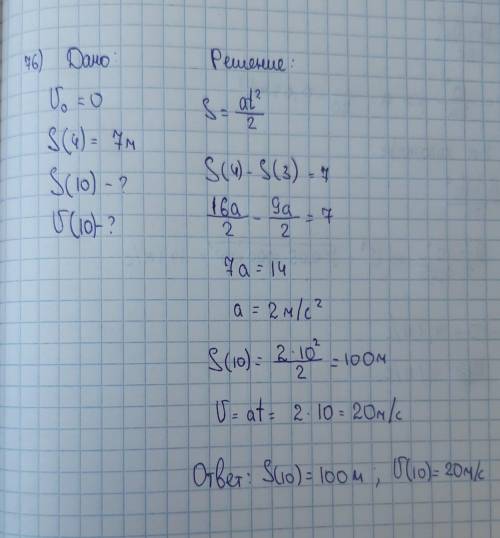 76) Дано:
υ₀ = 0
S(4) = 7м
S(10) - ?
υ(10) - ?
Решение:
S = at²/2
S(4) - S(3) = 7
16a/2 - 9a/2 = 7
7a = 14
a = 2 м/с²
S(10) = 2·10²/2 = 100м
υ = at = 2·10 = 20м/с
Ответ: S(10) = 100м ; υ(10) = 20м/с